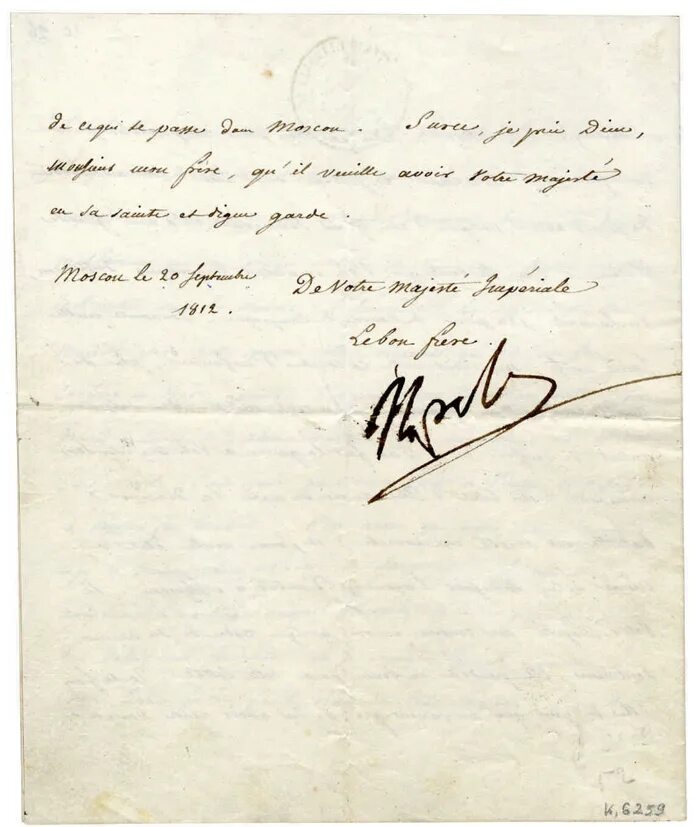 de ce qui se passe dans Moscou. Surce, je prie Dieu,
Monsieur mon frère, qu'il veuille avoir Votre Majesté
en sa sainte et digne garde.
Moscou le 20 Septembre
1812.
De Votre Majesté Impériale
Le bon frère
Napole
K, 6259